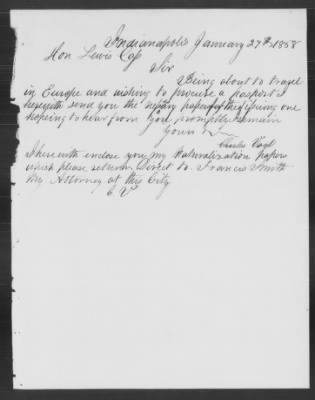 Indianapolis January 27th 1858
Hon Lewis Cass
Sir
Being about to travel
in Europe and wishing to procure a passport I
herewith send you the necessary papers of the
hoping to hear from you promptly I remain
Yours
Charles
I herewith enclose you my Naturalization papers
which please return Direct to Francis Smith
my Attorney at this City
C V